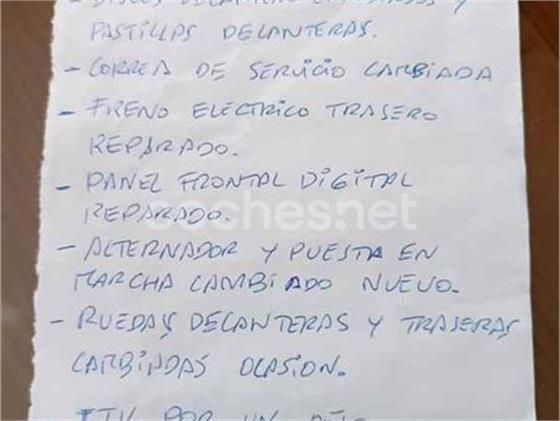 - DISCOS DELANTEROS CAMBIADOS Y
PASTILLAS DELANTERAS.
- CORREA DE SERVICIO CAMBIADA
- FRENO ELECTRICO TRASERO
REPARADO.
- PANEL FRONTAL DIGITAL
REPARADO.
coches.net
- ALTERNADOR Y PUESTA EN
MARCHA CAMBIADO NUEVO.
- RUEDAS DELANTERAS Y TRASERAS
CAMBIADAS OCASION.
ITV POR UN AÑO